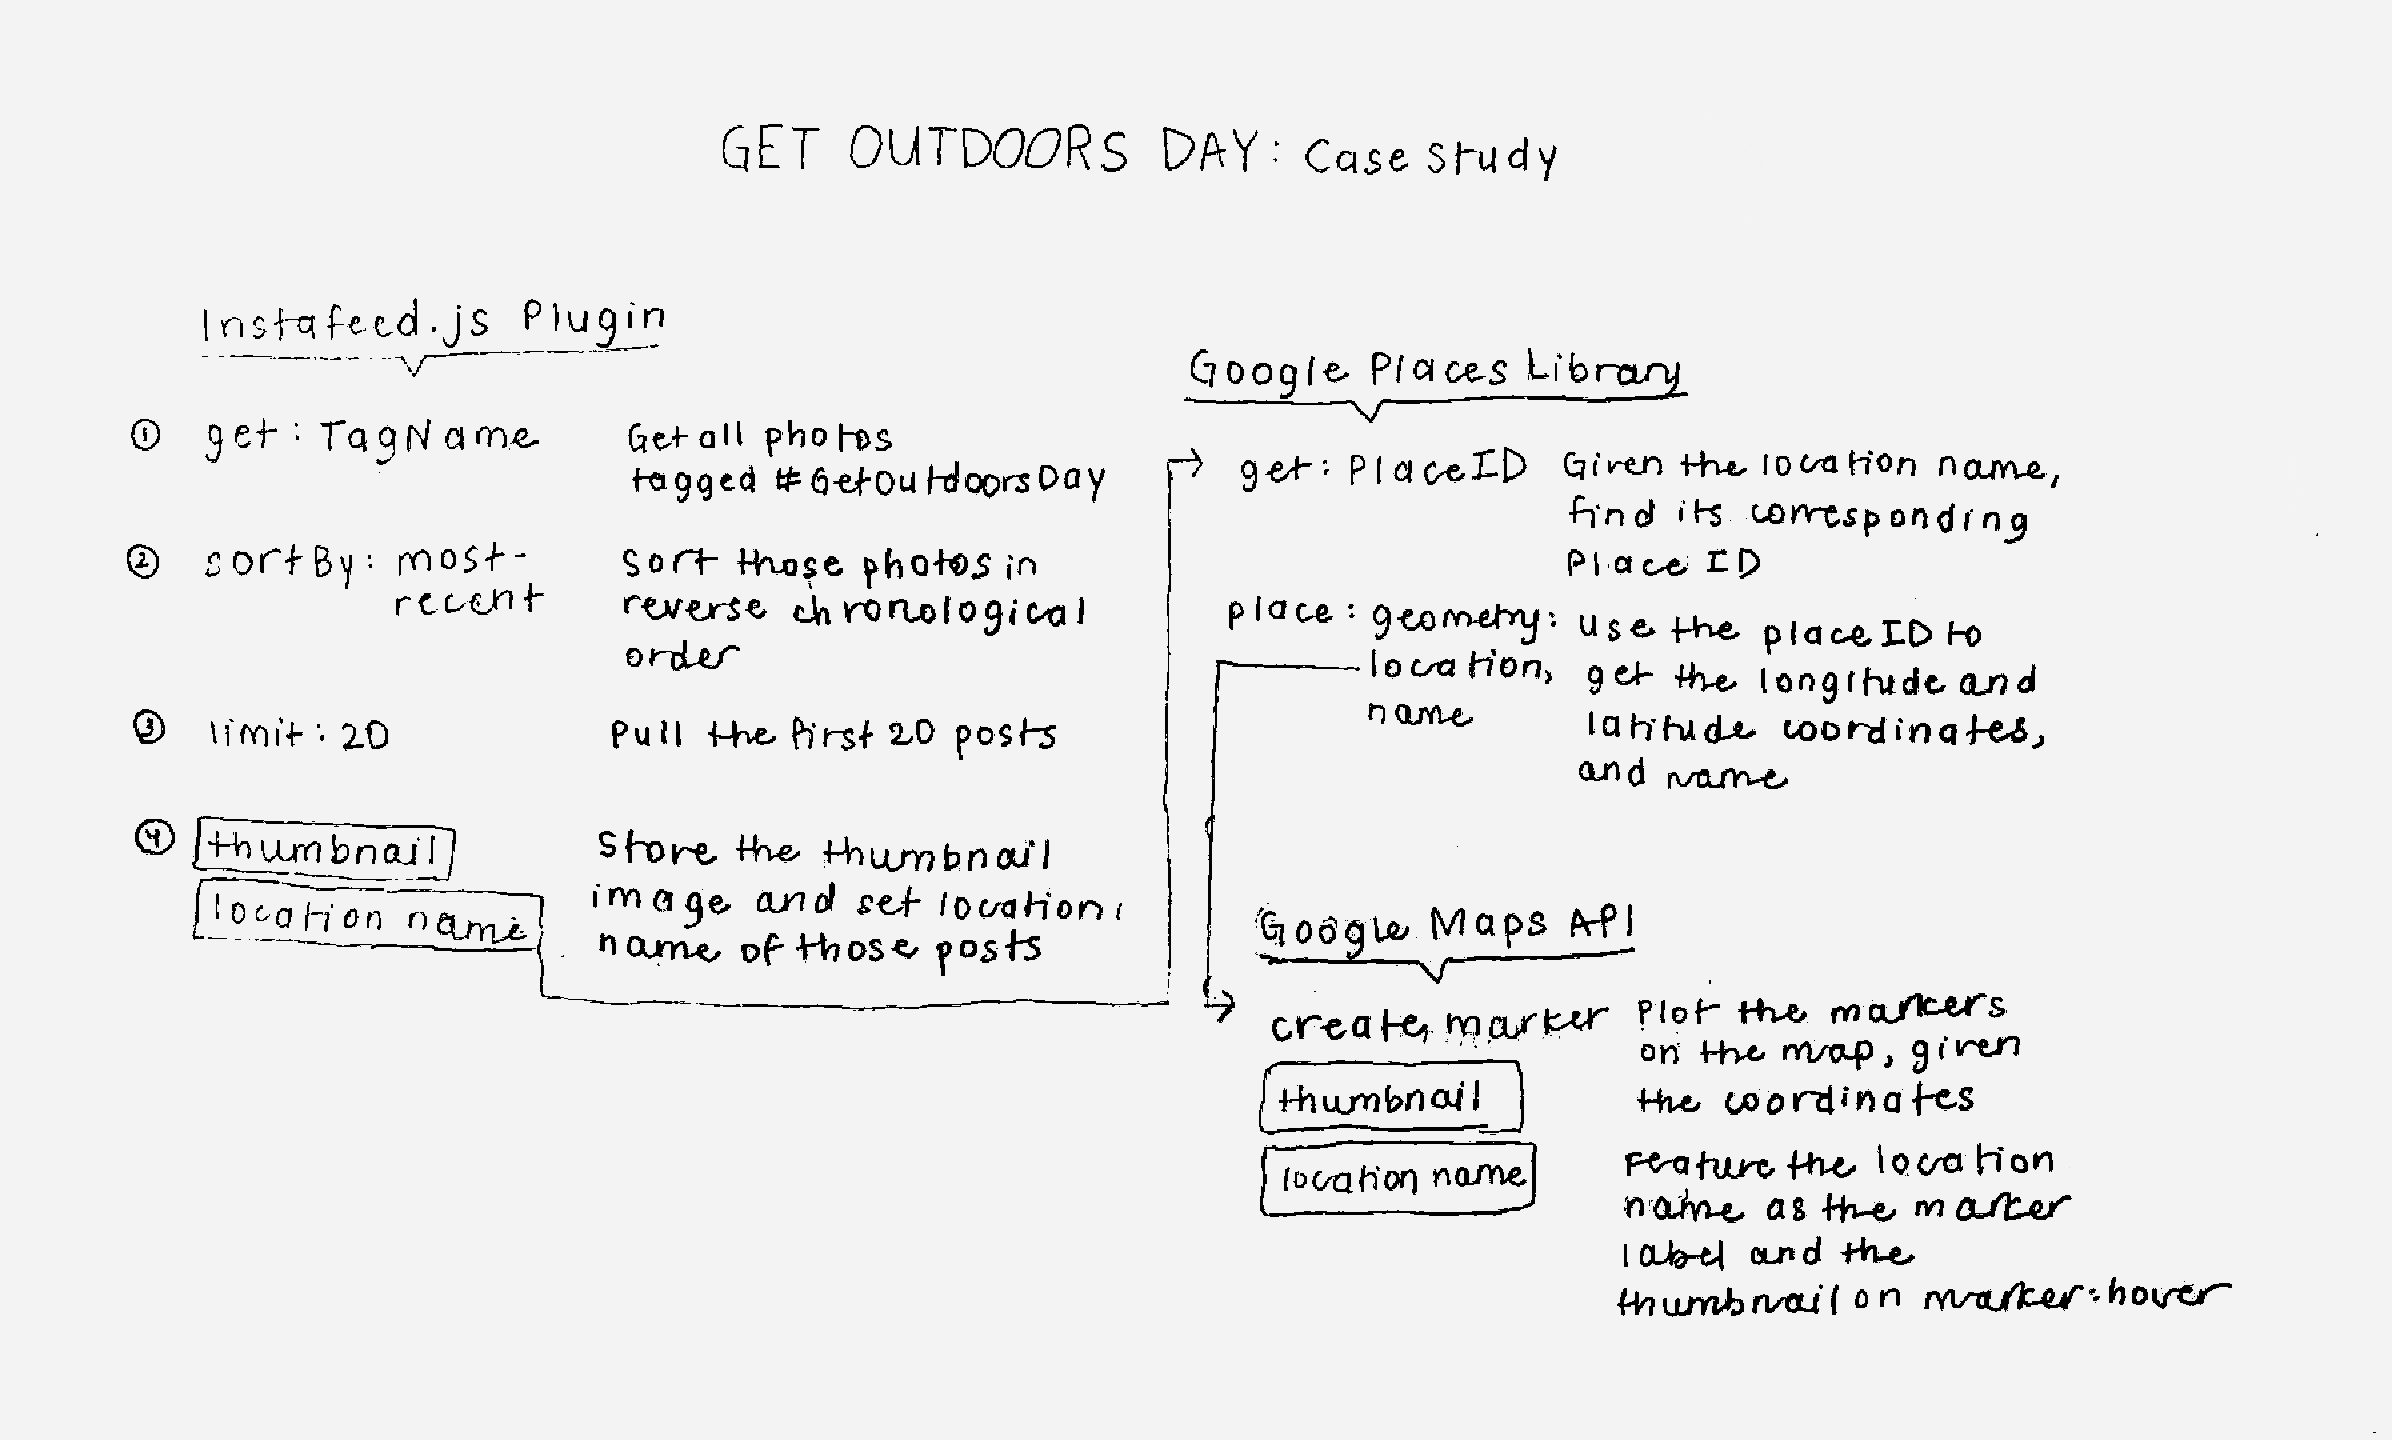 GET OUTDOORS DAY: Case Study
Instafeed.js Plugin
① get: TagName
Get all photos
tagged #GetOutdoorsDay
② sortBy: most-
recent
Sort those photos in
reverse chronological
order
③ limit: 20
Pull the first 20 posts
④ thumbnail
location name
Store the thumbnail
image and set location:
name of those posts
Google Places Library
get: PlaceID
Given the location name,
find its corresponding
Place ID
place: geometry:
location,
name
use the placeID to
get the longitude and
latitude coordinates,
and name
Google Maps API
create, marker
thumbnail
location name
Plot the markers
on the map, given
the coordinates
Feature the location
name as the marker
label and the
thumbnail on marker:hover